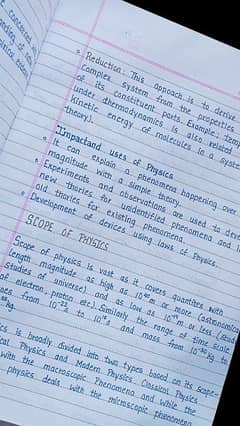 Concerned wi
nding of
Reduction: This approach is to derive
Complex system from the properties
of its constituent parts. Example: temp
under thermodynamics is also related
kinetic energy of molecules in a system
theory).
Impact and uses of Physics
It can explain a phenomena happening over
magnitude with a simple theory.
Experiments and observations are used to deve
new thories for unidentified phenomena and
old thories for existing phenomena.
Development of devices using laws of Physics.
SCOPE OF PHYSICS
Scope of physics is vast as it covers quantites with
length magnitude as high as 10⁴⁰m or more (astronomica
studies of universe) and as low as 10⁻¹⁴m or less (stud
of electron, proton etc). Similarly the range of time scale
oes from 10⁻²²s to 10¹⁸s and mass from 10⁻³⁰kg to
⁵⁵kg.
ics is broadly divided into two types based on its scope-
cal Physics and Modern Physics. Classical Physics
with the macroscopic Phenomena and while the
physics deals with the microscopic phenomena